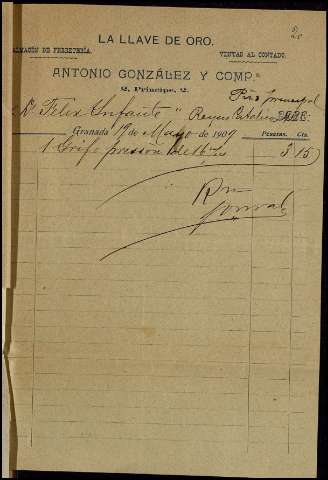 LA LLAVE DE ORO.
ALMACÉN DE FERRETERÍA. VENTAS AL CONTADO.
ANTONIO GONZÁLEZ Y COMP.ª
2, Príncipe, 2. Piso principal
D. Felix Infante " Reyes Católicos DEBE:
Granada 17 de Mayo de 1909 Pesetas. Cts.
1 Grifo presión de 16 3 15